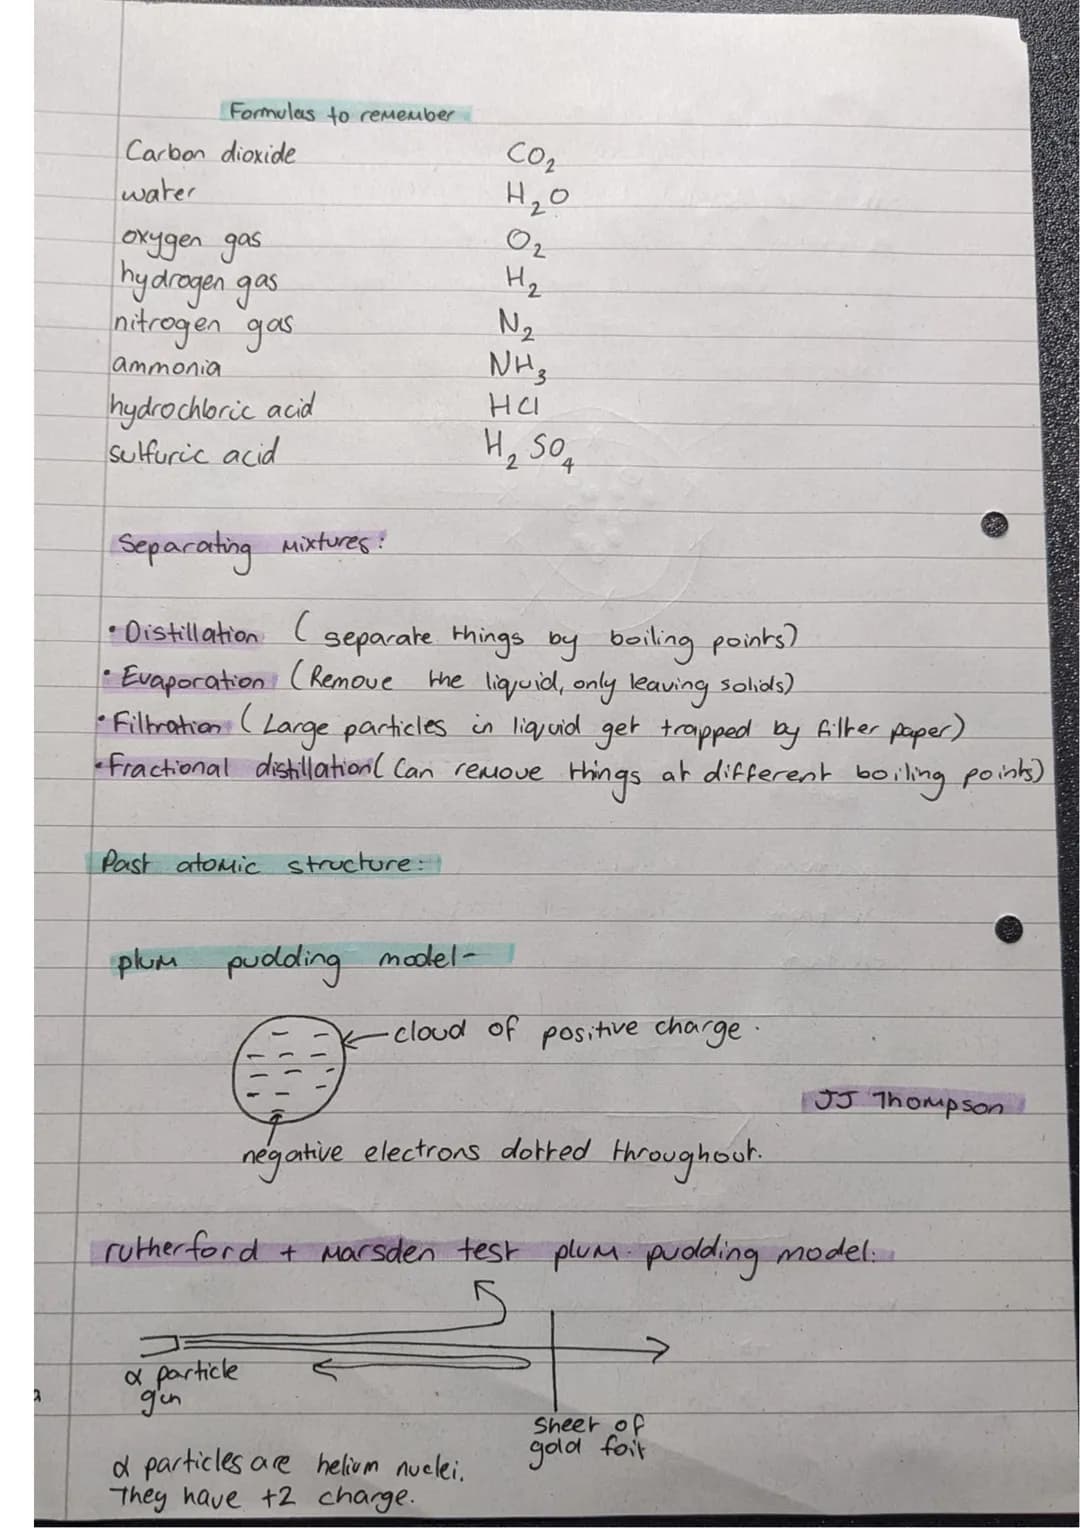 Formulas to remember
Carbon dioxide CO₂
water H₂O
oxygen gas O₂
hydrogen gas H₂
nitrogen gas N₂
ammonia NH₃
hydrochloric acid HCl
sulfuric acid H₂SO₄
Separating mixtures:
• Distillation (separate things by boiling points)
• Evaporation (Remove the liquid, only leaving solids)
• Filtration (Large particles in liquid get trapped by filter paper)
• Fractional distillation (Can remove things at different boiling points)
Past atomic structure:
plum pudding model-
cloud of positive charge.
JJ Thompson
negative electrons dotted throughout.
rutherford + Marsden test plum pudding model:
α particle
gun
sheet of
gold foil
α particles are helium nuclei.
They have +2 charge.